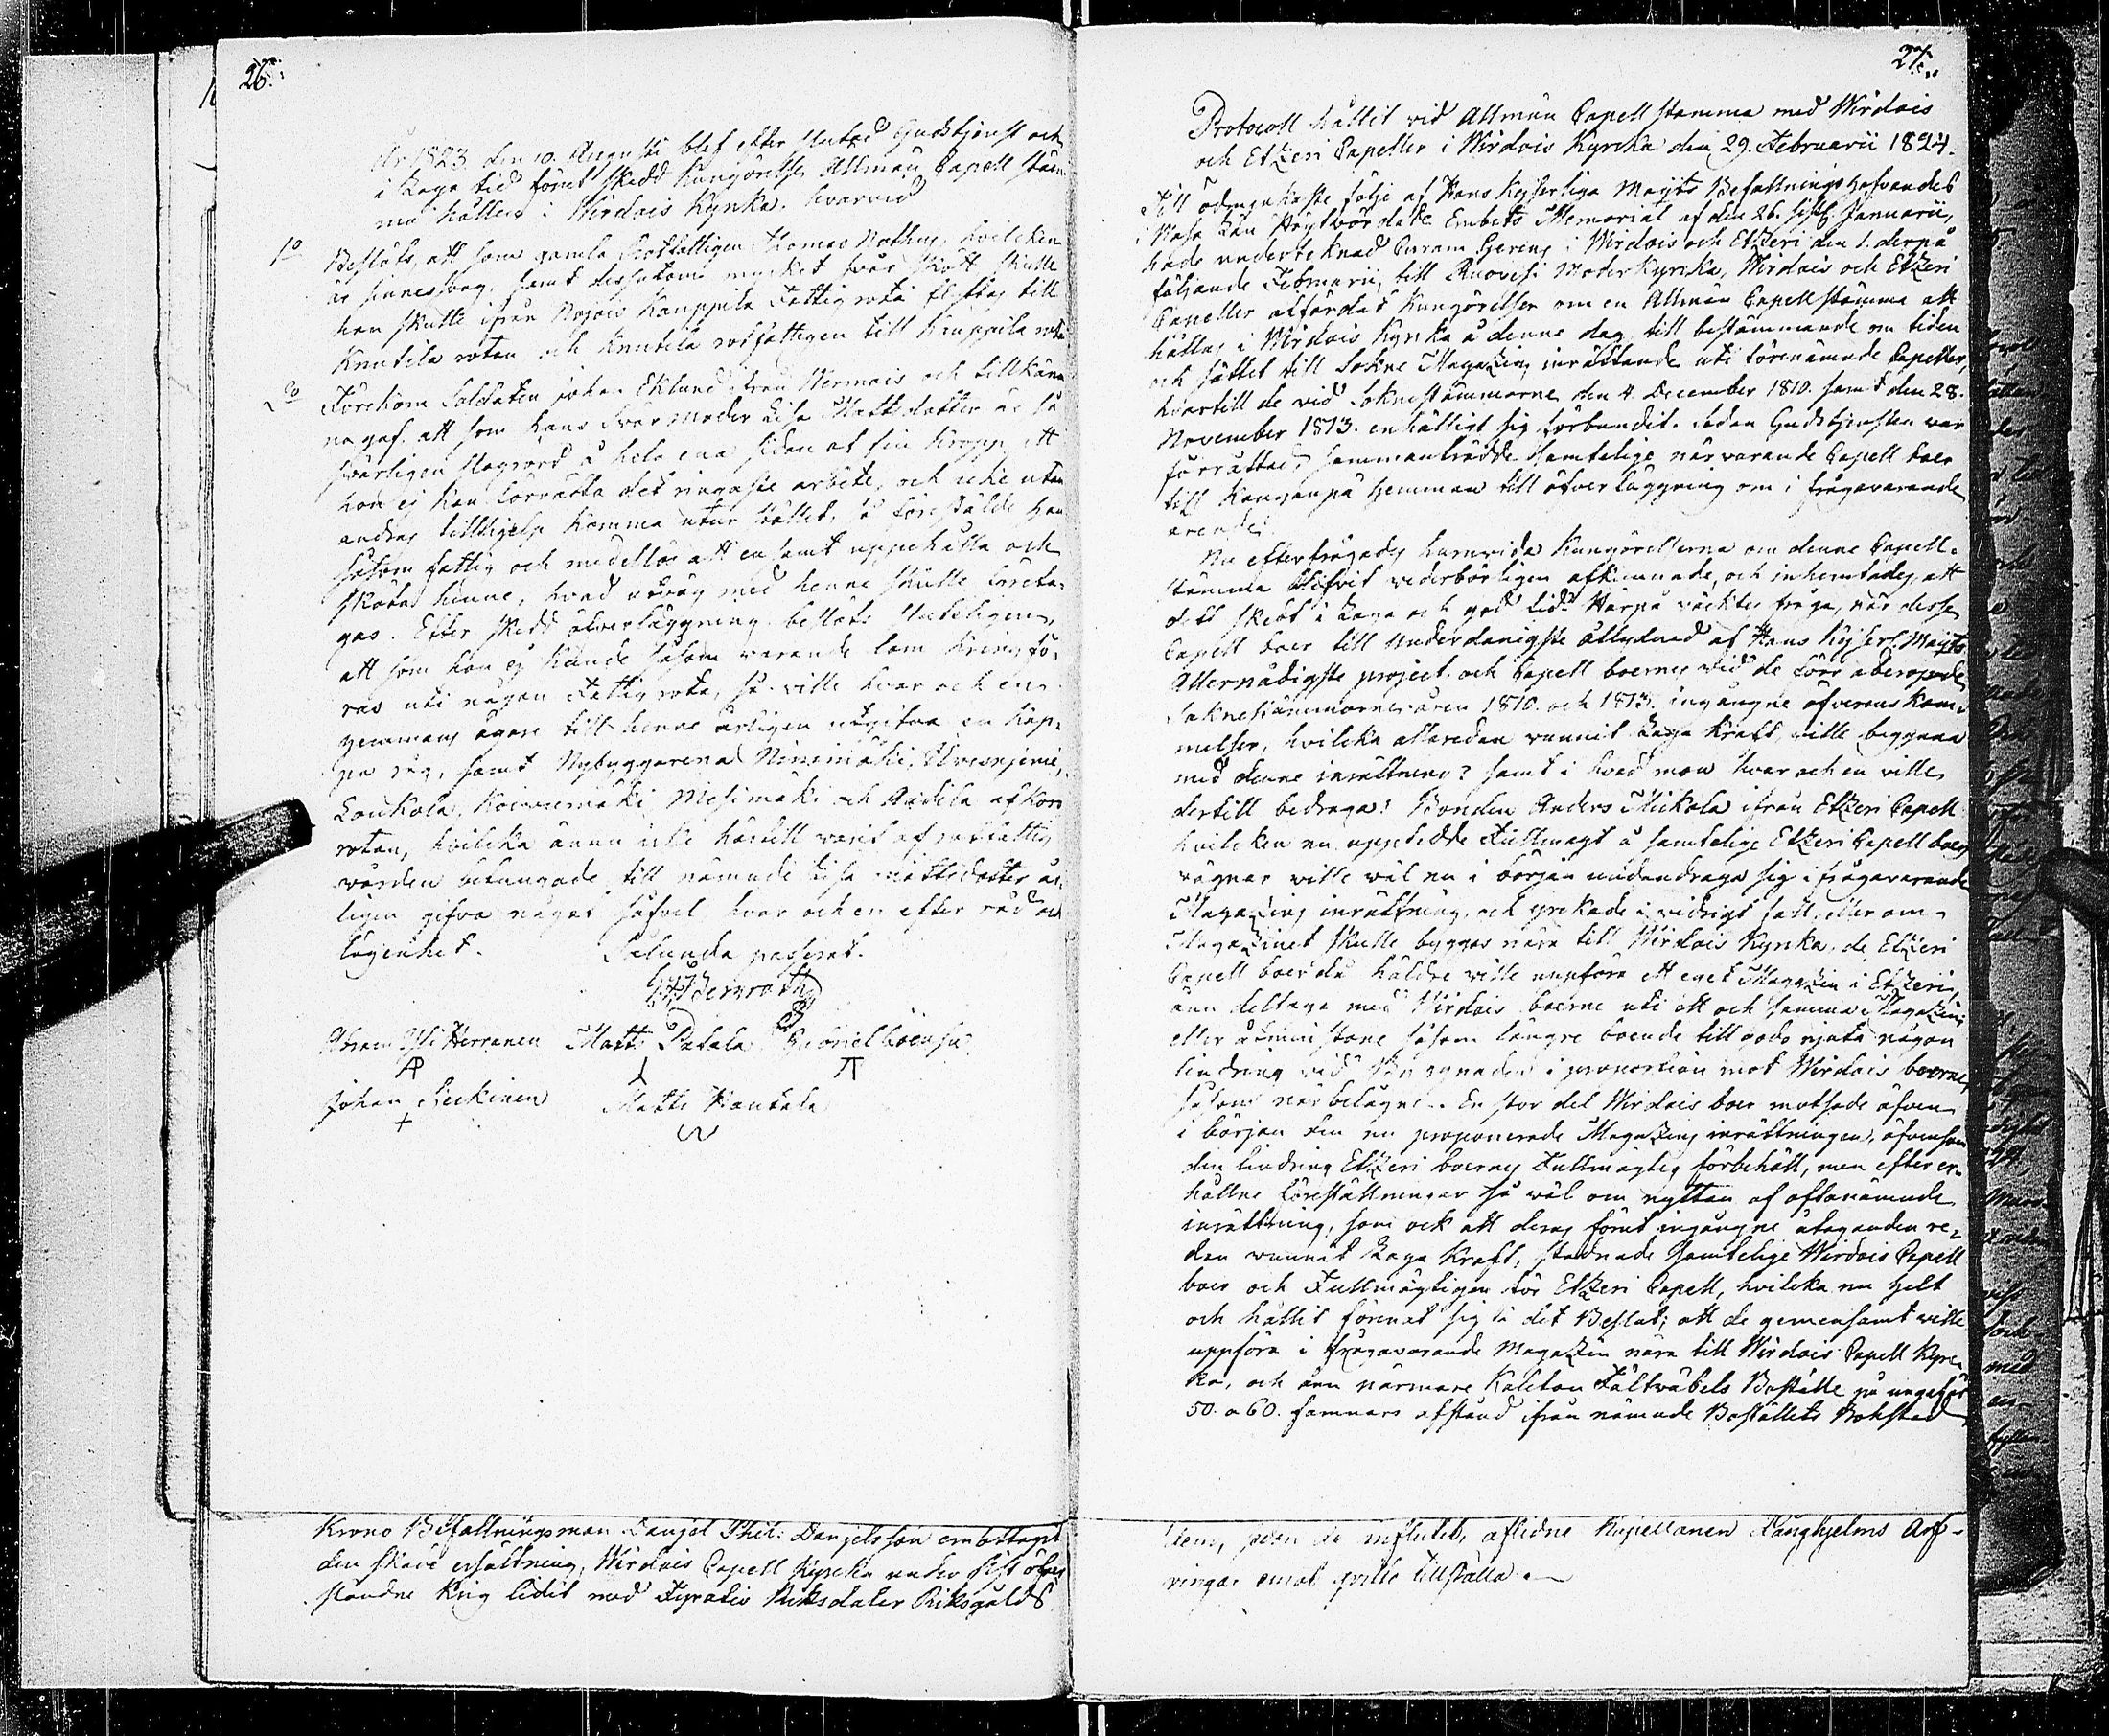 26.
År 1823 den 10. Augusti blef efter slutad Gudstjenst och
i laga tid förut skedd kungörelse Allmän Capell stäm-
ma hållen i Wirdois Kyrka. hvarvid
1o Beslöts, att som gamla Rotfattigen Thomas
är sinnessvag, samt dessutom mycket svår skött skulle
han skulle ifrån Kauppila Fattig rota flyttas till
Knutila rotan och Knutila rotfattigen till Kauppila rota
2o Förekom Soldaten Johan Eklund ifrån Wermais och tillkänna
na gaf. att som hans Svär moder Lisa Mattsdotter är så
svårligen slagrörd å hela ena sidan af sin kropp, att
hon ej kan förrätta det ringaste arbete, och icke utan
andras tillhjelp komma utur stället, så förestälde han
såsom fattig och medellös att ensamt uppehålla och
sköta henne, hvad utväg med henne skulle företa-
gas. Efter skedd öfverläggning beslöts sluteligen,
att som hon ej kunde såsom varande lam kringfö-
ras uti någon Fattig rota, så ville hvar och en
hemmans ägare till henne årligen utgifva en kap-
pa råg, samt Nybyggarena Niinimäki,
Loukola, Koivumäki Mesimäki och Andila af Kor
rotan, hvilka ännu icke härtill varit af rotfattig
vården betungade till nämnde Lisa Mattsdotter år-
ligen gifva något såfvel hvar och en efter råd och
lägenhet. Sålunda passerat.
Bergroth
Abram Yli Herranen Matts Patala Gabriel
Johan Matts Rantala
Krono Befallningsman Danjel Phil: Danjelsson emottagit
den skade ersättning, Wirdois Capell Kyrcka under sist öfver
ståndne krig lidit med Fyratio Riksdaler Riksgälds
27.
Protocoll hållit vid Allmän Capell stämma med Wirdois
och Etzeri Capeller i Wirdois Kyrcka den 29. Februarii 1824.
Till ödmjukaste följe af Hans Kejserliga Maj:ts Befallningshafvandes
i Wasa Län Höglärde Embets Memorial af den 26. sistl. Januarii,
hade undertecknad Curam Gerens i Wirdois och Etzeri den 1. derpå
följande Februarii, till Ruovesi Moderkyrcka, Wirdois och Etzeri
Capeller affärdat Kungörelser om en Allmän Capellstämma att
hållas i Wirdois Kyrka å denne dag till bestämmande om tiden
och sättet till Sockne Magazins inrättande uti förenämnde Capeller,
hvartill de vid Soknestämmorne den 4. December 1810. samt den 28.
November 1813. enhälligt sig förbundit. Sedan Gudstjensten var
förrättad, sammanträdde samtelige närvarande Capell boer
till Kangaspä Hemman till öfverläggning om i frågavarande
ärende.
Nu efterfrågades huruvida Kungörelserna om denne Capell-
stämma blifvit vederbörligen afkunnade, och inhemtades, att
dett skedt i laga och god tid. Härpå väcktes fråga, när desse
Capell boer till underdånigste åtlydnad af Hans Kejserl. Maj:ts
Allernådigste project och Capell boernes vid de före åberopade
Soknestämmorne åren 1810. och 1813. ingångne öfverenskom-
melser, hvilka allaredan vunnit Laga Kraft, ville begynna
med denne inrättning? samt i hvad mon hvar och en ville
dertill bedraga? Bonden Anders Mickola ifrån Etzeri Capell
hvilken nu uppteedde Fullmagt å samtelige Etzeri Capell boers
vägnar ville väl nu i början undandraga sig i frågavarande
Magazins inrättning, och yrkade i vidrigt fall, eller om
Magazinet skulle byggas nära till Wirdois Kyrka, de Etzeri
Capell boer då häldre ville uppföra ett eget Magazin i Etzeri,
änn deltaga med Wirdois boerne uti ett och samma Magazin,
eller åtminstone såsom längre boende till godo njuta någon
lindring vid byggnaden i proportion mot Wirdois boerne,
såsom när belägne. En stor del Wirdois boer motsade äfven
i början den nu proponerade Magazins inrättningen, äfvensom
den lindring Etzeri boernes Fullmägtig förbehåll, men efter er-
hållne föreställningar så väl om nyttan af oftanämnde
inrättning, som ock att deras förut ingångne åtaganden re-
dan vunnit Laga Kraft, stadnade samtelige Wirdois Capell
boer och Fullmägtigen för Etzeri Capell, hvilka nu helt
och hållit förenat sig i det Beslut; att de gemensamt ville
uppföra i frågavarande Magazin nära till Wirdois Capell Kyrc-
ka, och änn närmare Kaleton Fältväbels Boställe på ungefär
50. a 60. famnars afstånd ifrån nämnde Boställets Bohlstad
dem, sedan de influtet, aflidne Kapellanen Langhjelms Arf-
vingar emot qvitto tillställa.